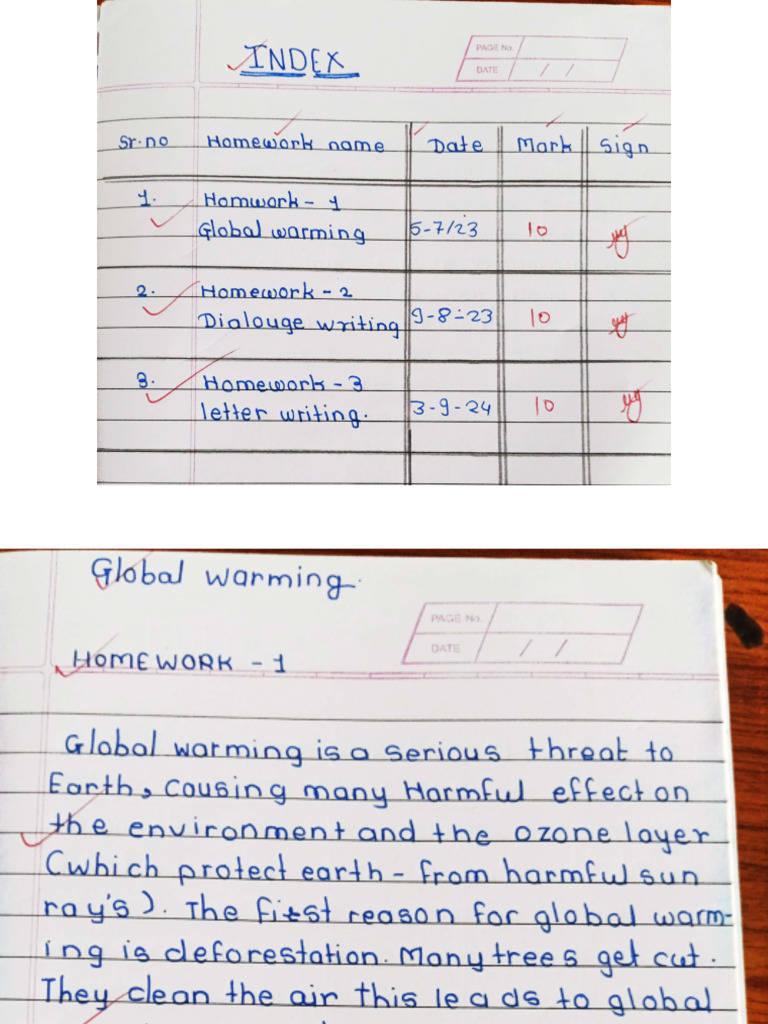 INDEX
PAGE No.
DATE / /
Sr.no Homework name Date Mark Sign
1. Homwork - 1
Global warming 5-7/23 10
2. Homework - 2
Dialouge writing 9-8-23 10
3. Homework - 3
letter writing. 3-9-24 10
Global warming.
PAGE No.
DATE / /
HOMEWORK - 1
Global warming is a serious threat to
Earth, causing many Harmful effect on
the environment and the ozone layer
(which protect earth - from harmful sun
ray's). The first reason for global warm-
ing is deforestation. Many trees get cut.
They clean the air this leads to global